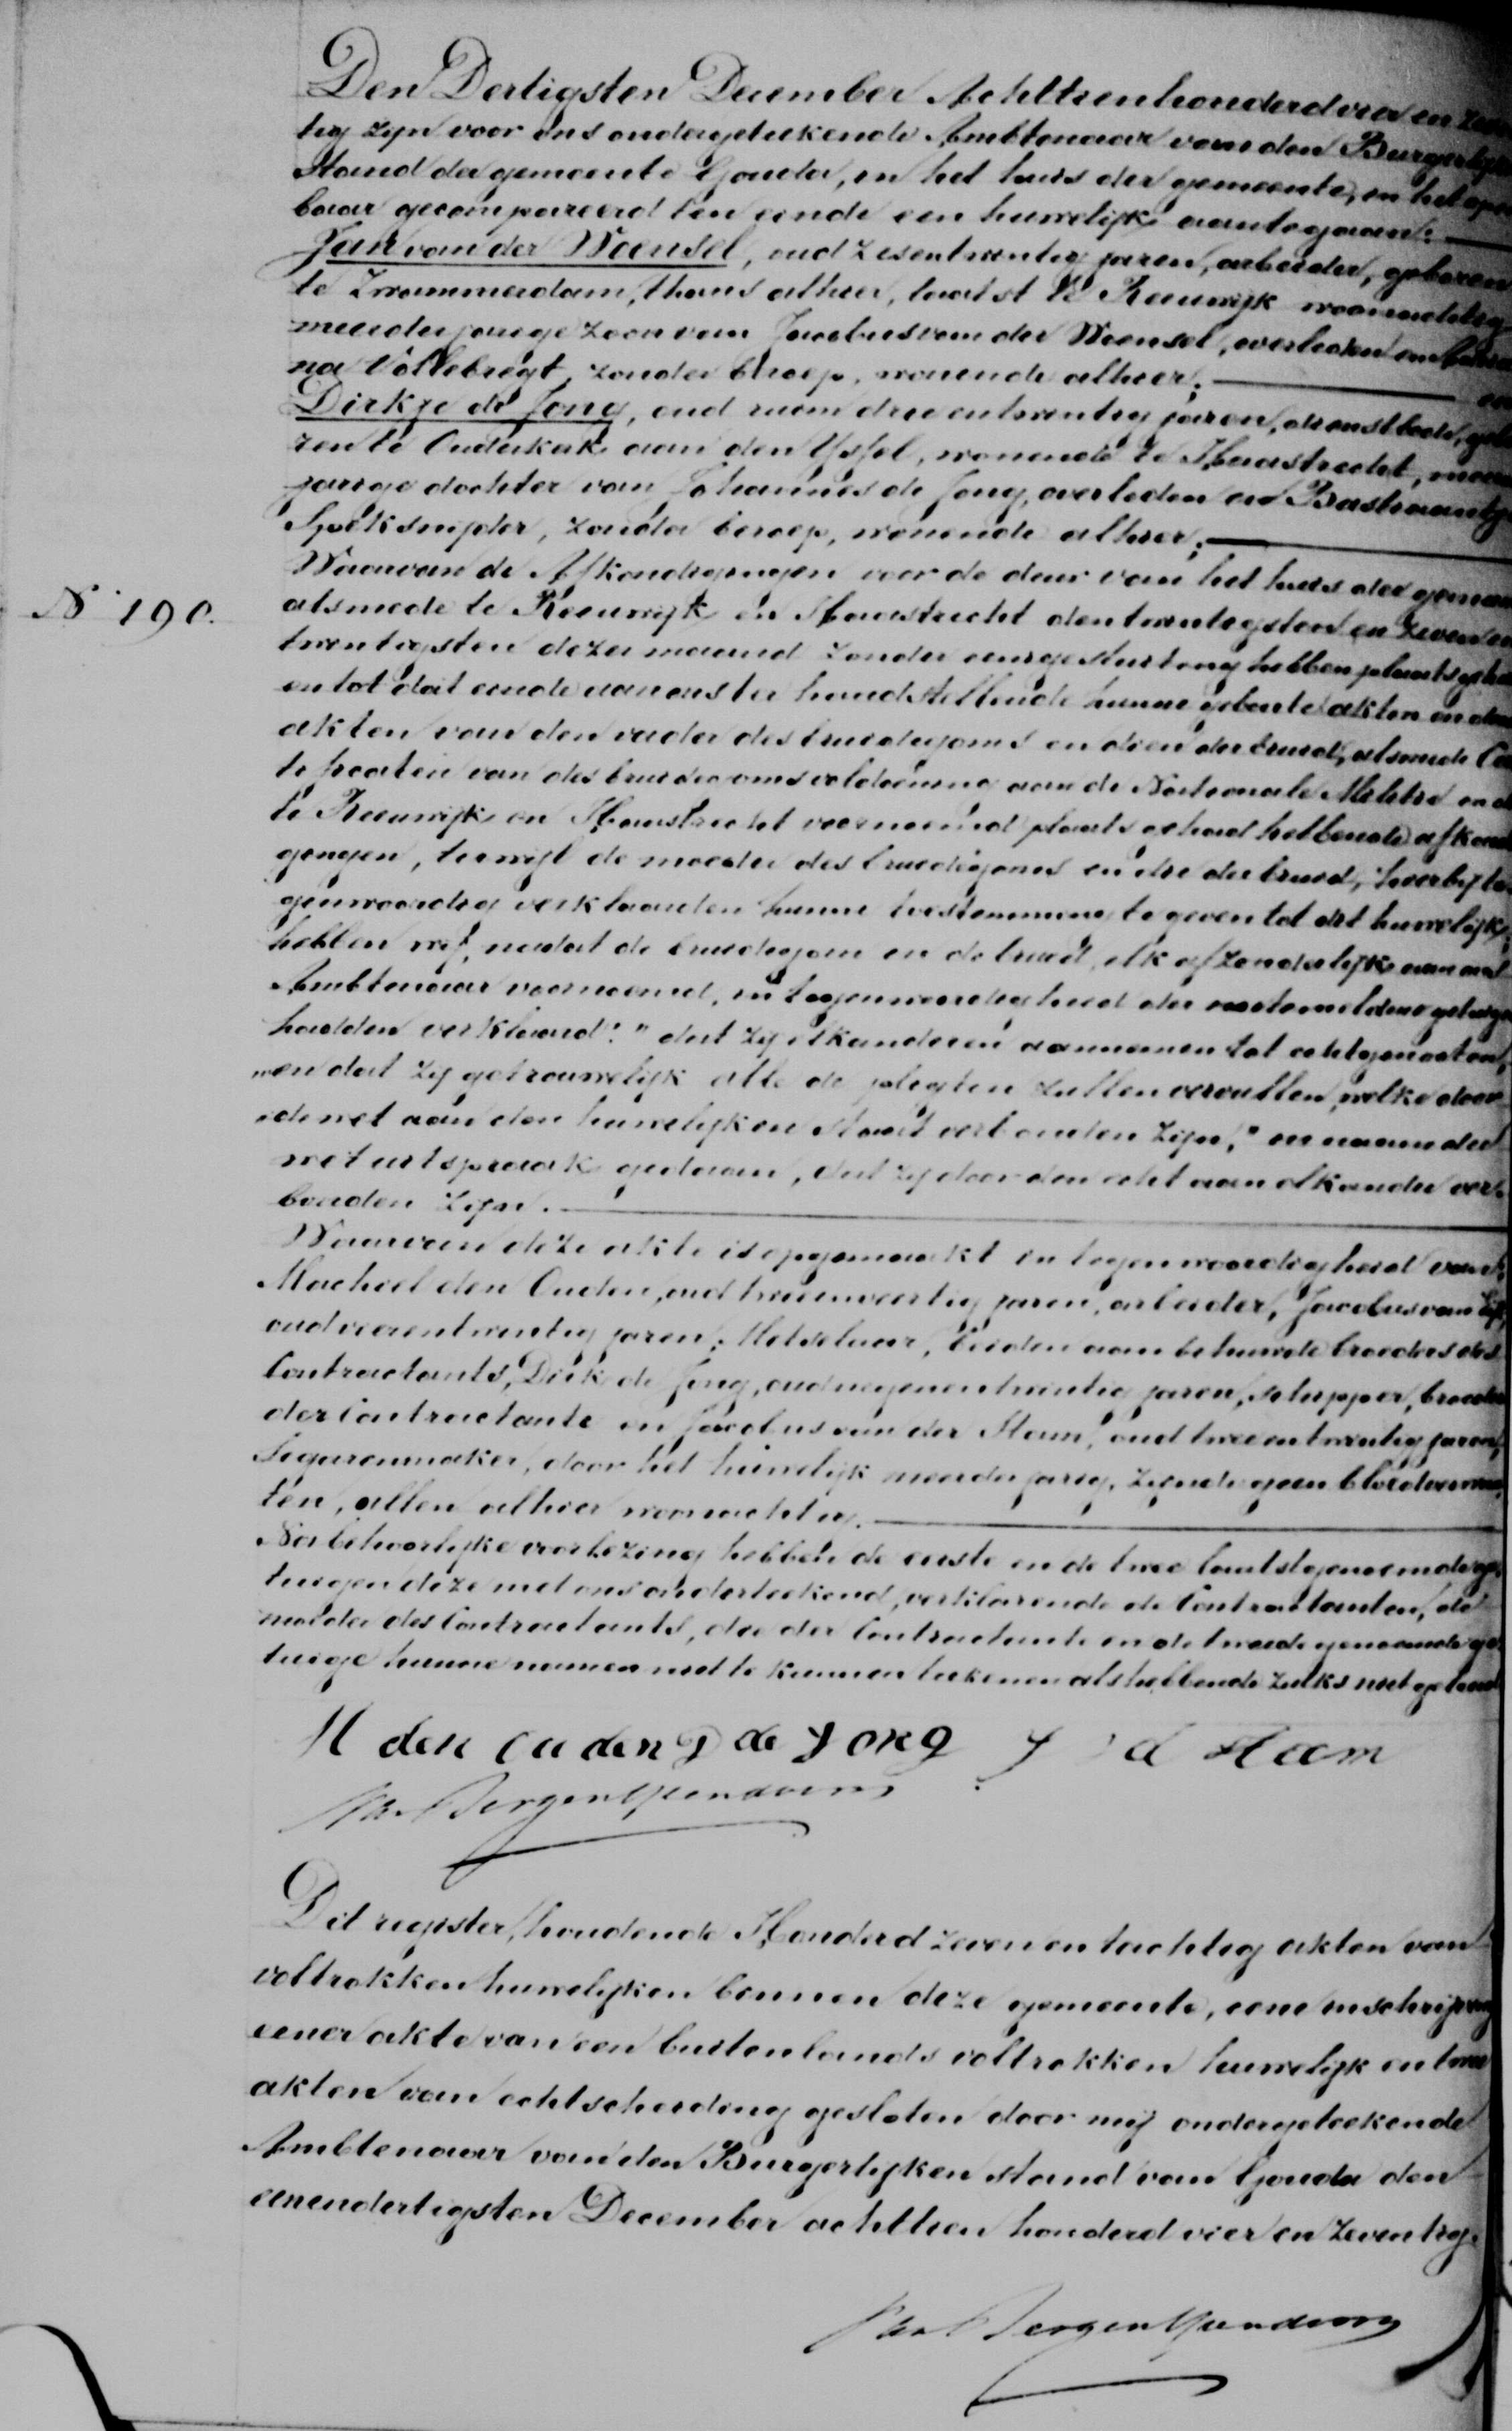 Den Dertigsten December Achttienhonderd vier en zeven
tig zijn voor ons ondergeteekende Ambtenaar van den Burgerlijken
Stand der gemeente Gouda, in het huis der gemeente, in het open
baar gecompareerd ten einde een huwelijk aantegaan:
Jan van der Woensel, oud zesentwintig jaren, arbeider, geboren
te Zwammerdam, thans alhier, laatst te Reeuwijk woonachtig
meerderjarige zoon van Jacobus van der Woensel, overleden en
na Vollebregt, zonder beroep, wonende alhier; en
Dirkje de Jong, oud ruim drie entwintig jaren, dienstbode, gebo
ren te Ouderkerk aan den IJssel, wonende te Haastrecht, meerder
jarige dochter van Johannes de Jong, overleden en Bastiaantje
Speksnijder, zonder beroep, wonende alhier;
Waarvan de Afkondigingen voor de deur van het huis der gemeente
N. 190.
alsmede te Reeuwijk en Haastrecht den twintigsten en zeven en
twintigsten dezer maand zonder eenige stuiting hebben plaats gehad
en tot dat einde aan ons ter hand stellende hunne geboorteakten en
akten van den vader des bruidegoms en dien der bruid, alsmede
tificaten van des bruidegoms voldoening aan de Nationale Militie en
te Reeuwijk en Haastrecht voornoemd plaats gehad hebbende afkondi
gingen, terwijl de moeder des bruidegoms en die der bruid, hierbij te
genwoordig verklaarden hunne toestemming te geven tot dit huwelijk;
hebben wij, nadat de bruidegom en de bruid, elk afzonderlijk aan ons
Ambtenaar voornoemd, in tegenwoordigheid der natemeldene getuigen
hadden verklaard: "dat zij elkanderen aannemen tot echtgenooten,
"en dat zij getrouwelijk alle de plegten zullen vervullen, welke door
"de wet aan den huwelijken staat verbonden zijn," in naam der
wet uitspraak gedaan, dat zij door den echt aan elkander ver
bonden zijn.
Waarvan deze akte is opgemaakt in tegenwoordigheid van
Machiel den Ouden, oud tweeenveertig jaren, arbeider, Jacobus van
oud vierentwintig jaren, Metselaar, beiden aanbehuwde broeders des
Contractants, Dirk de Jong, oud negenentwintig jaren, schipper, broeder
der Contractante en Jacobus van der Stam, oud tweeentwintig jaren,
Sigarenmaker, door het huwelijk meerderjarig, zijnde geen bloedverwan
ten, allen alhier woonachtig.
Na behoorlijke voorlezing hebben de eerste en de twee laatstgenoemde ge
tuigen deze met ons onderteekend, verklarende de Contractanten, de
moeder des Contractants, die der Contractante en de tweede genoemde ge
tuige hunne namen niet te kunnen teekenen als hebbende zulks niet geleerd
M den ouden D de Jong J v d Stam
Bergen IJzendoorn
Dit register, houdende Honderd zeven en tachtig akten van
voltrokken huwelijken binnen deze gemeente, eene inschrijving
eener akte van een buitenlands voltrokken huwelijk en twee
akten van echtscheiding gesloten door mij ondergeteekende
Ambtenaar van den Burgerlijken stand van Gouda den
eenendertigsten December achttien honderd vier en zeventig.
Bergen IJzendoorn